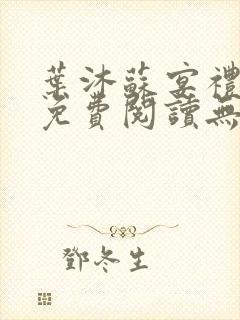 葉沐蘇宴禮
免費閱讀無
鄧冬生